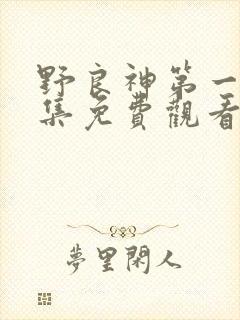 野良神第一
集免費觀看
夢里閑人